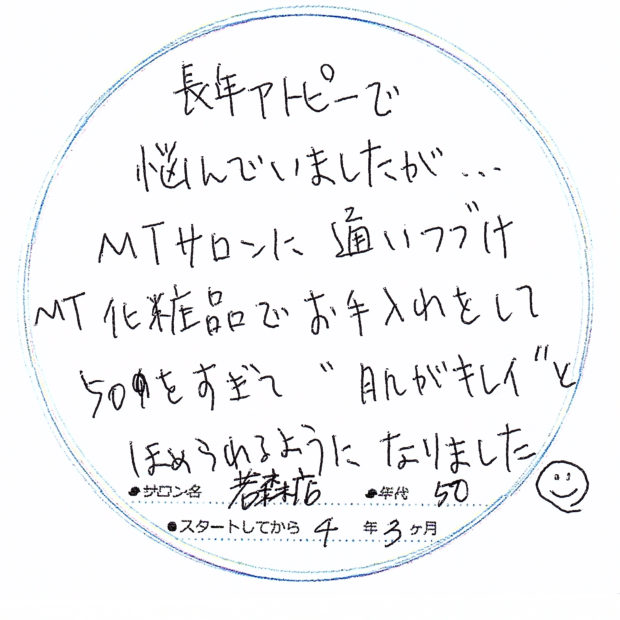 長年アトピーで
悩んでいましたが...
MTサロンに通いつづけ
MT化粧品でお手入れをして
50をすぎて"肌がキレイ"と
ほめられるようになりました
●サロン名 若森店 ●年代 50
●スタートしてから 4 年 3 ヶ月